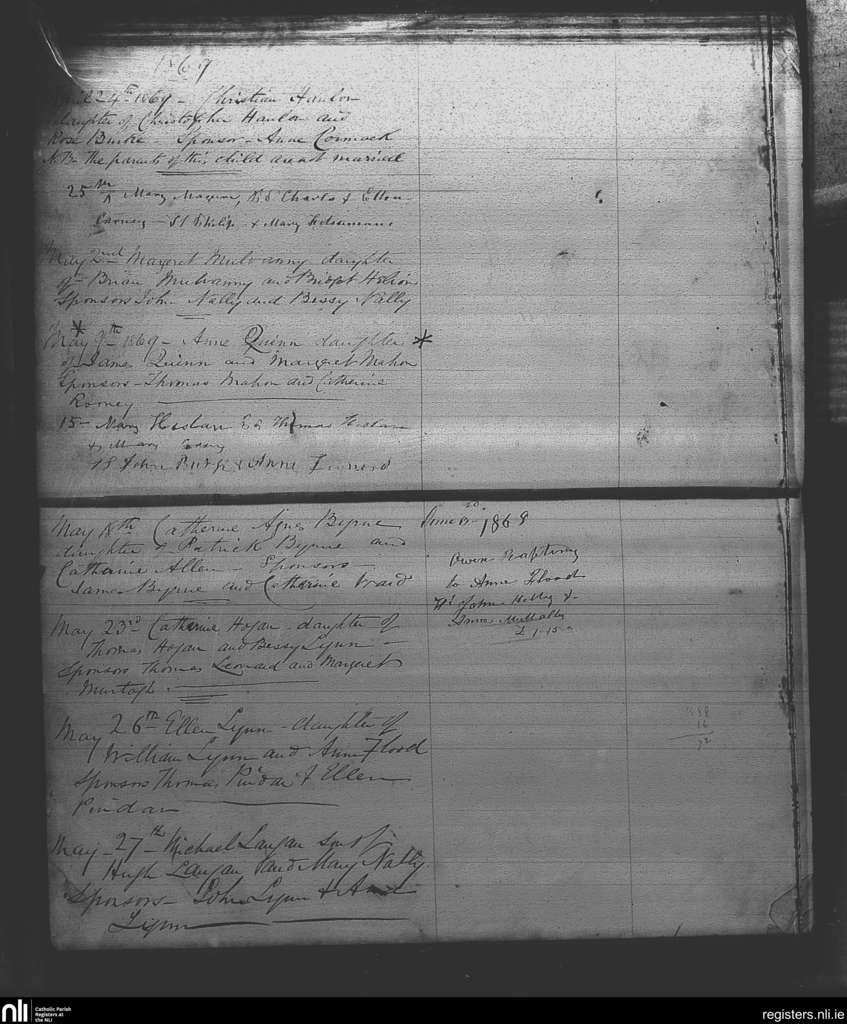 1869
April 24th 1869 - Christian Hanlon
daughter of Christopher Hanlon and
Rose Burke - Sponsor - Anne Cormack
NB - The parents of this child are not married
25th Mary Maguire, Charles & Ellen
Carney - Ss Philip & Mary
May 2nd Margret Mulvanny daughter
of Brian Mulvanny and Bridget
Sponsors John Nally and Bessy Nally
May 9th 1869 - Anne Quinn daughter
of James Quinn and Margret Mahon
Sponsors - Thomas Mahon and Catherine
Rooney
15 - Mary Heslan Thomas Heslan
& Mary
Ss John Burke & Anne Leonard
May 18th Catherine Agnes Byrne
daughter of Patrick Byrne and
Catherine Allen - Sponsors -
James Byrne and Catherine Braid
May 23rd Catherine Hogan - daughter of
Thomas Hogan and Bessy Lynn -
Sponsors Thomas Leonard and Margaret
Murtagh
May 26th Ellen Lynn - daughter of
William Lynn and Anne Flood
Sponsors Thomas Pindar & Ellen
Pindar
May 27th Michael Langan son of
Hugh Langan and Mary Nally
Sponsors - John Lynn &
Lynn
June 1869
Owen
to Anne Flood
John &
£1-15-
nli
Catholic Parish
Registers at
the NLI
registers.nli.ie